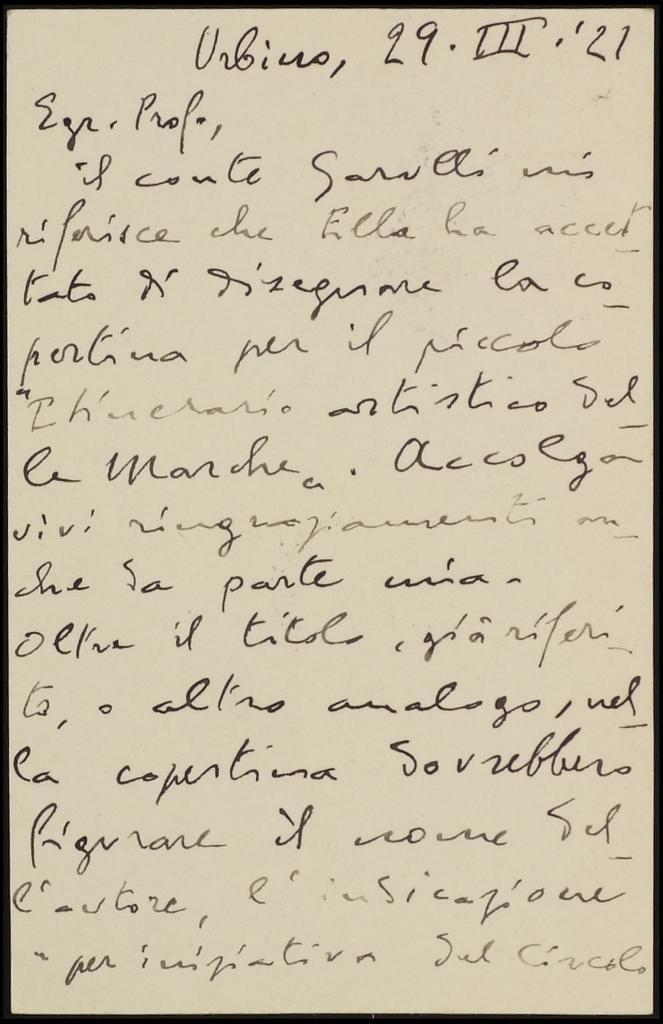 Urbino, 29.III.'21
Egr. Prof.,
il conte Garulli mi
riferisce che Ella ha accet-
tato di disegnare la co-
pertina per il piccolo
"Itinerario artistico del-
le Marche". Accolga
vivi ringraziamenti an-
che da parte mia.
Oltre il titolo, già riferi-
to, o altro analogo, nel-
la copertina dovrebbero
figurare il nome del-
l'autore, l'indicazione
"per iniziativa del Circolo